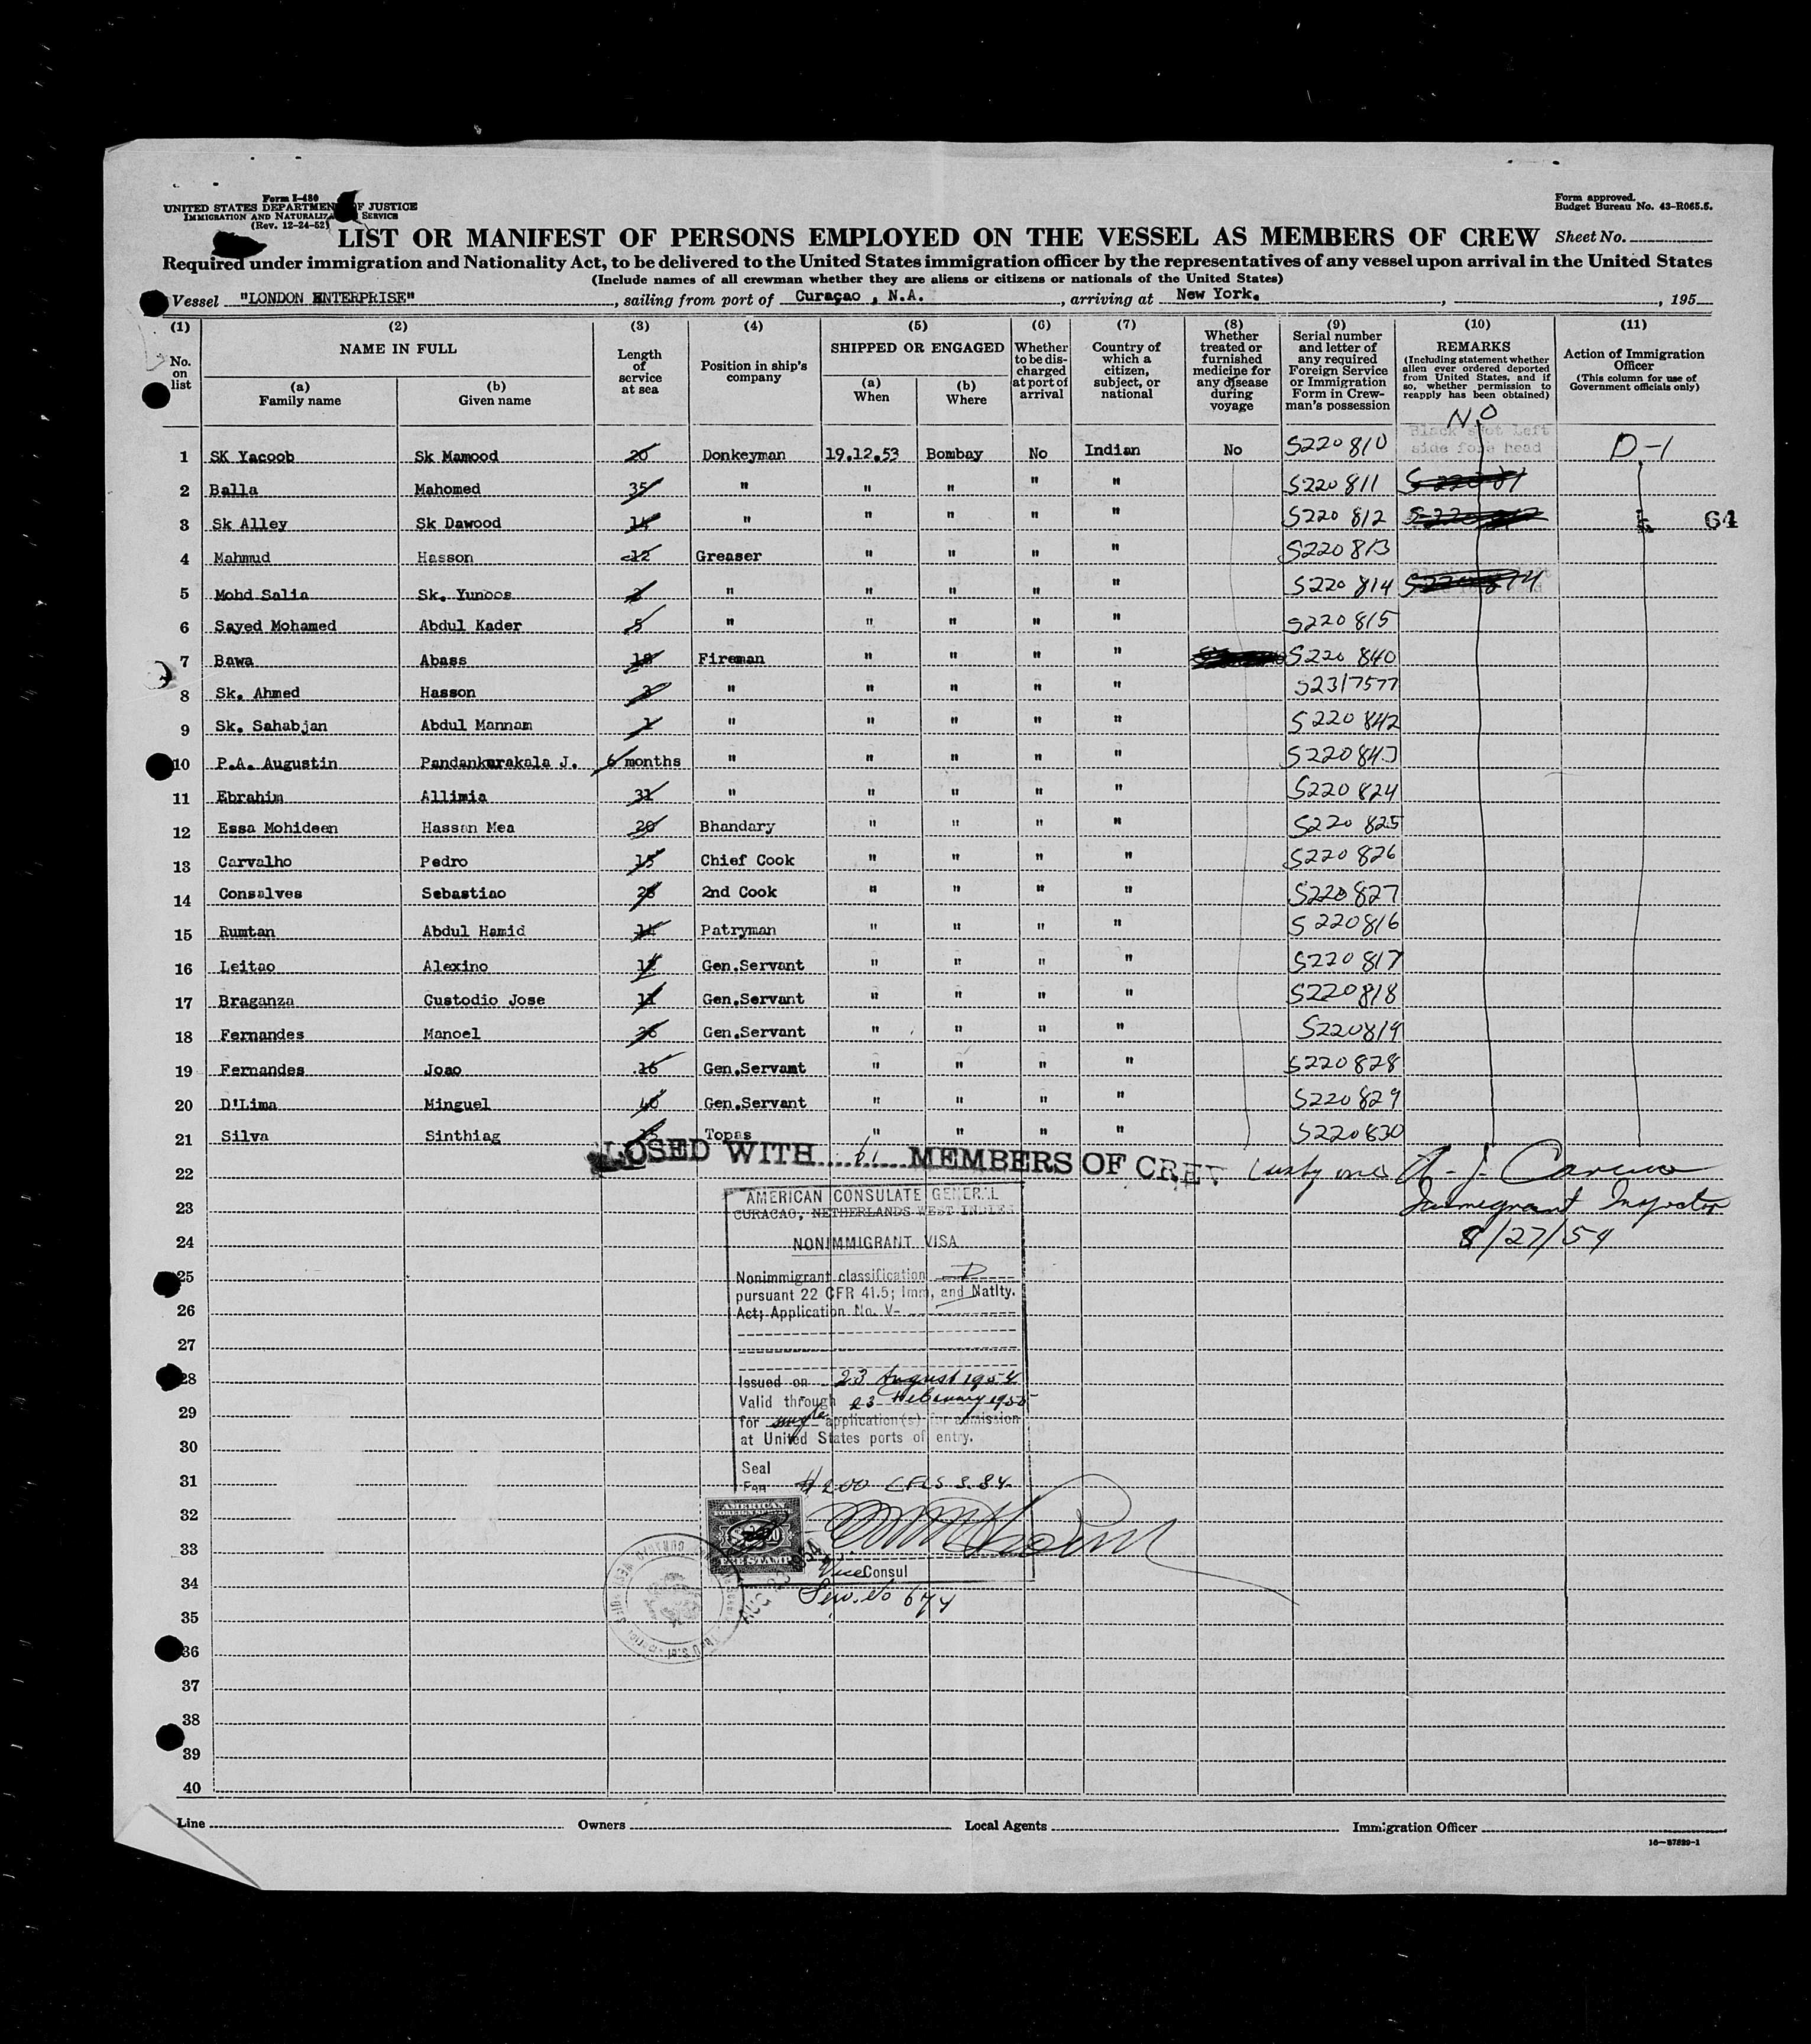 Form I-480
UNITED STATES DEPARTMENT OF JUSTICE
IMMIGRATION AND NATURALIZATION SERVICE
(Rev. 12-24-52)
Form approved.
Budget Bureau No. 43-R065.5.
LIST OR MANIFEST OF PERSONS EMPLOYED ON THE VESSEL AS MEMBERS OF CREW Sheet No.
Required under immigration and Nationality Act, to be delivered to the United States immigration officer by the representatives of any vessel upon arrival in the United States
(Include names of all crewman whether they are aliens or citizens or nationals of the United States)
Vessel "LONDON ENTERPRISE", sailing from port of Curaçao, N.A., arriving at New York., , 195
(1) No. on list
(2) NAME IN FULL
(a) Family name
(b) Given name
(3) Length of service at sea
(4) Position in ship's company
(5) SHIPPED OR ENGAGED
(a) When
(b) Where
(6) Whether to be discharged at port of arrival
(7) Country of which a citizen, subject, or national
(8) Whether treated or furnished medicine for any disease during voyage
(9) Serial number and letter of any required Foreign Service or Immigration Form in Crewman's possession
(10) REMARKS (Including statement whether alien ever ordered deported from United States, and if so, whether permission to reapply has been obtained)
(11) Action of Immigration Officer (This column for use of Government officials only)
NO
Black spot Left
side fore head
1 SK Yacoob Sk Mamood 20 Donkeyman 19.12.53 Bombay No Indian No S220810 D-1
2 Balla Mahomed 35 " " " " " S220811
3 Sk Alley Sk Dawood 14 " " " " " S220812 64
4 Mahmud Hasson 12 Greaser " " " " S220813
5 Mohd Salia Sk. Yunoos 2 " " " " " S220814
6 Sayed Mohamed Abdul Kader 5 " " " " " S220815
7 Bawa Abass 18 Fireman " " " " S220840
8 Sk. Ahmed Hasson 2 " " " " " S2317577
9 Sk. Sahabjan Abdul Mannam 1 " " " " " S220842
10 P.A. Augustin Pandankarakala J. 6 months " " " " " S220843
11 Ebrahim Allimia 31 " " " " " S220824
12 Essa Mohideen Hassan Mea 20 Bhandary " " " " S220825
13 Carvalho Pedro 15 Chief Cook " " " " S220826
14 Consalves Sebastiao 28 2nd Cook " " " " S220827
15 Rumtan Abdul Hamid 14 Patryman " " " " S220816
16 Leitao Alexino 12 Gen.Servant " " " " S220817
17 Braganza Custodio Jose 11 Gen.Servant " " " " S220818
18 Fernandes Manoel 26 Gen.Servant " " " " S220819
19 Fernandes Joao 16 Gen.Servant " " " " S220828
20 D'Lima Minguel 40 Gen.Servant " " " " S220829
21 Silva Sinthiag 15 Topas " " " " S220830
CLOSED WITH 61 MEMBERS OF CREW
22
Immigrant Inspector
8/27/54
23
24
25
26
27
28
29
30
31
32
33
34
35
36
37
38
39
40
AMERICAN CONSULATE GENERAL
CURACAO, NETHERLANDS WEST INDIES
NONIMMIGRANT VISA
Nonimmigrant classification D
pursuant 22 CFR 41.5; Imm. and Natlty.
Act; Application No. V-
Issued on 23 August 1954
Valid through 23 February 1955
for single application(s) for admission
at United States ports of entry.
Seal
Fee $2.00 CFLS 3.84
AMERICAN
FOREIGN SERVICE
$2.00
FEE STAMP
AUG 23 1954
Vice Consul
Serv. No 674
Line Owners Local Agents Immigration Officer
16-67829-1